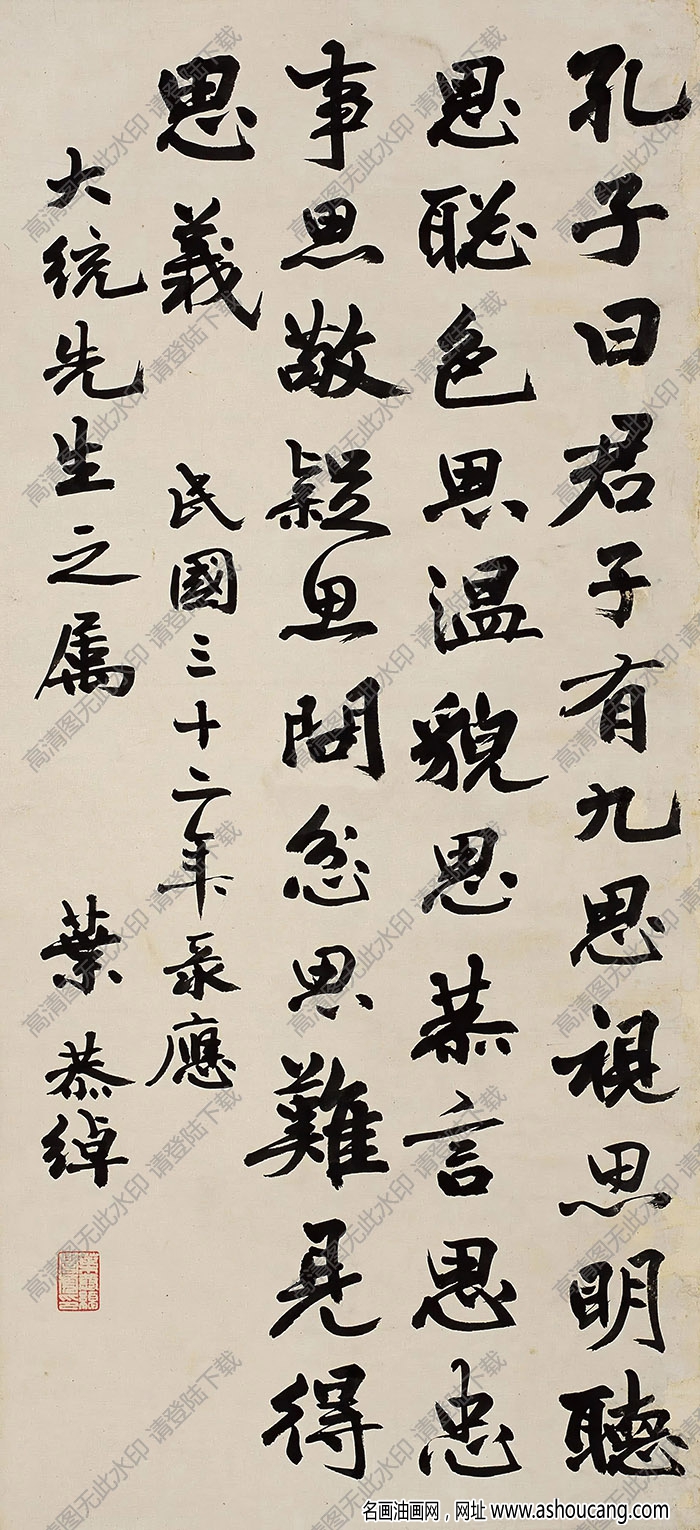 孔子曰君子有九思視思明聽
思聡色思温貌思恭言思忠
事思敬疑思問忿思難見得
思義
民國三十二年录應
大統先生之属
葉恭綽
高清图无此水印 请登陆下载
名画油画网，网址 www.ashoucang.com